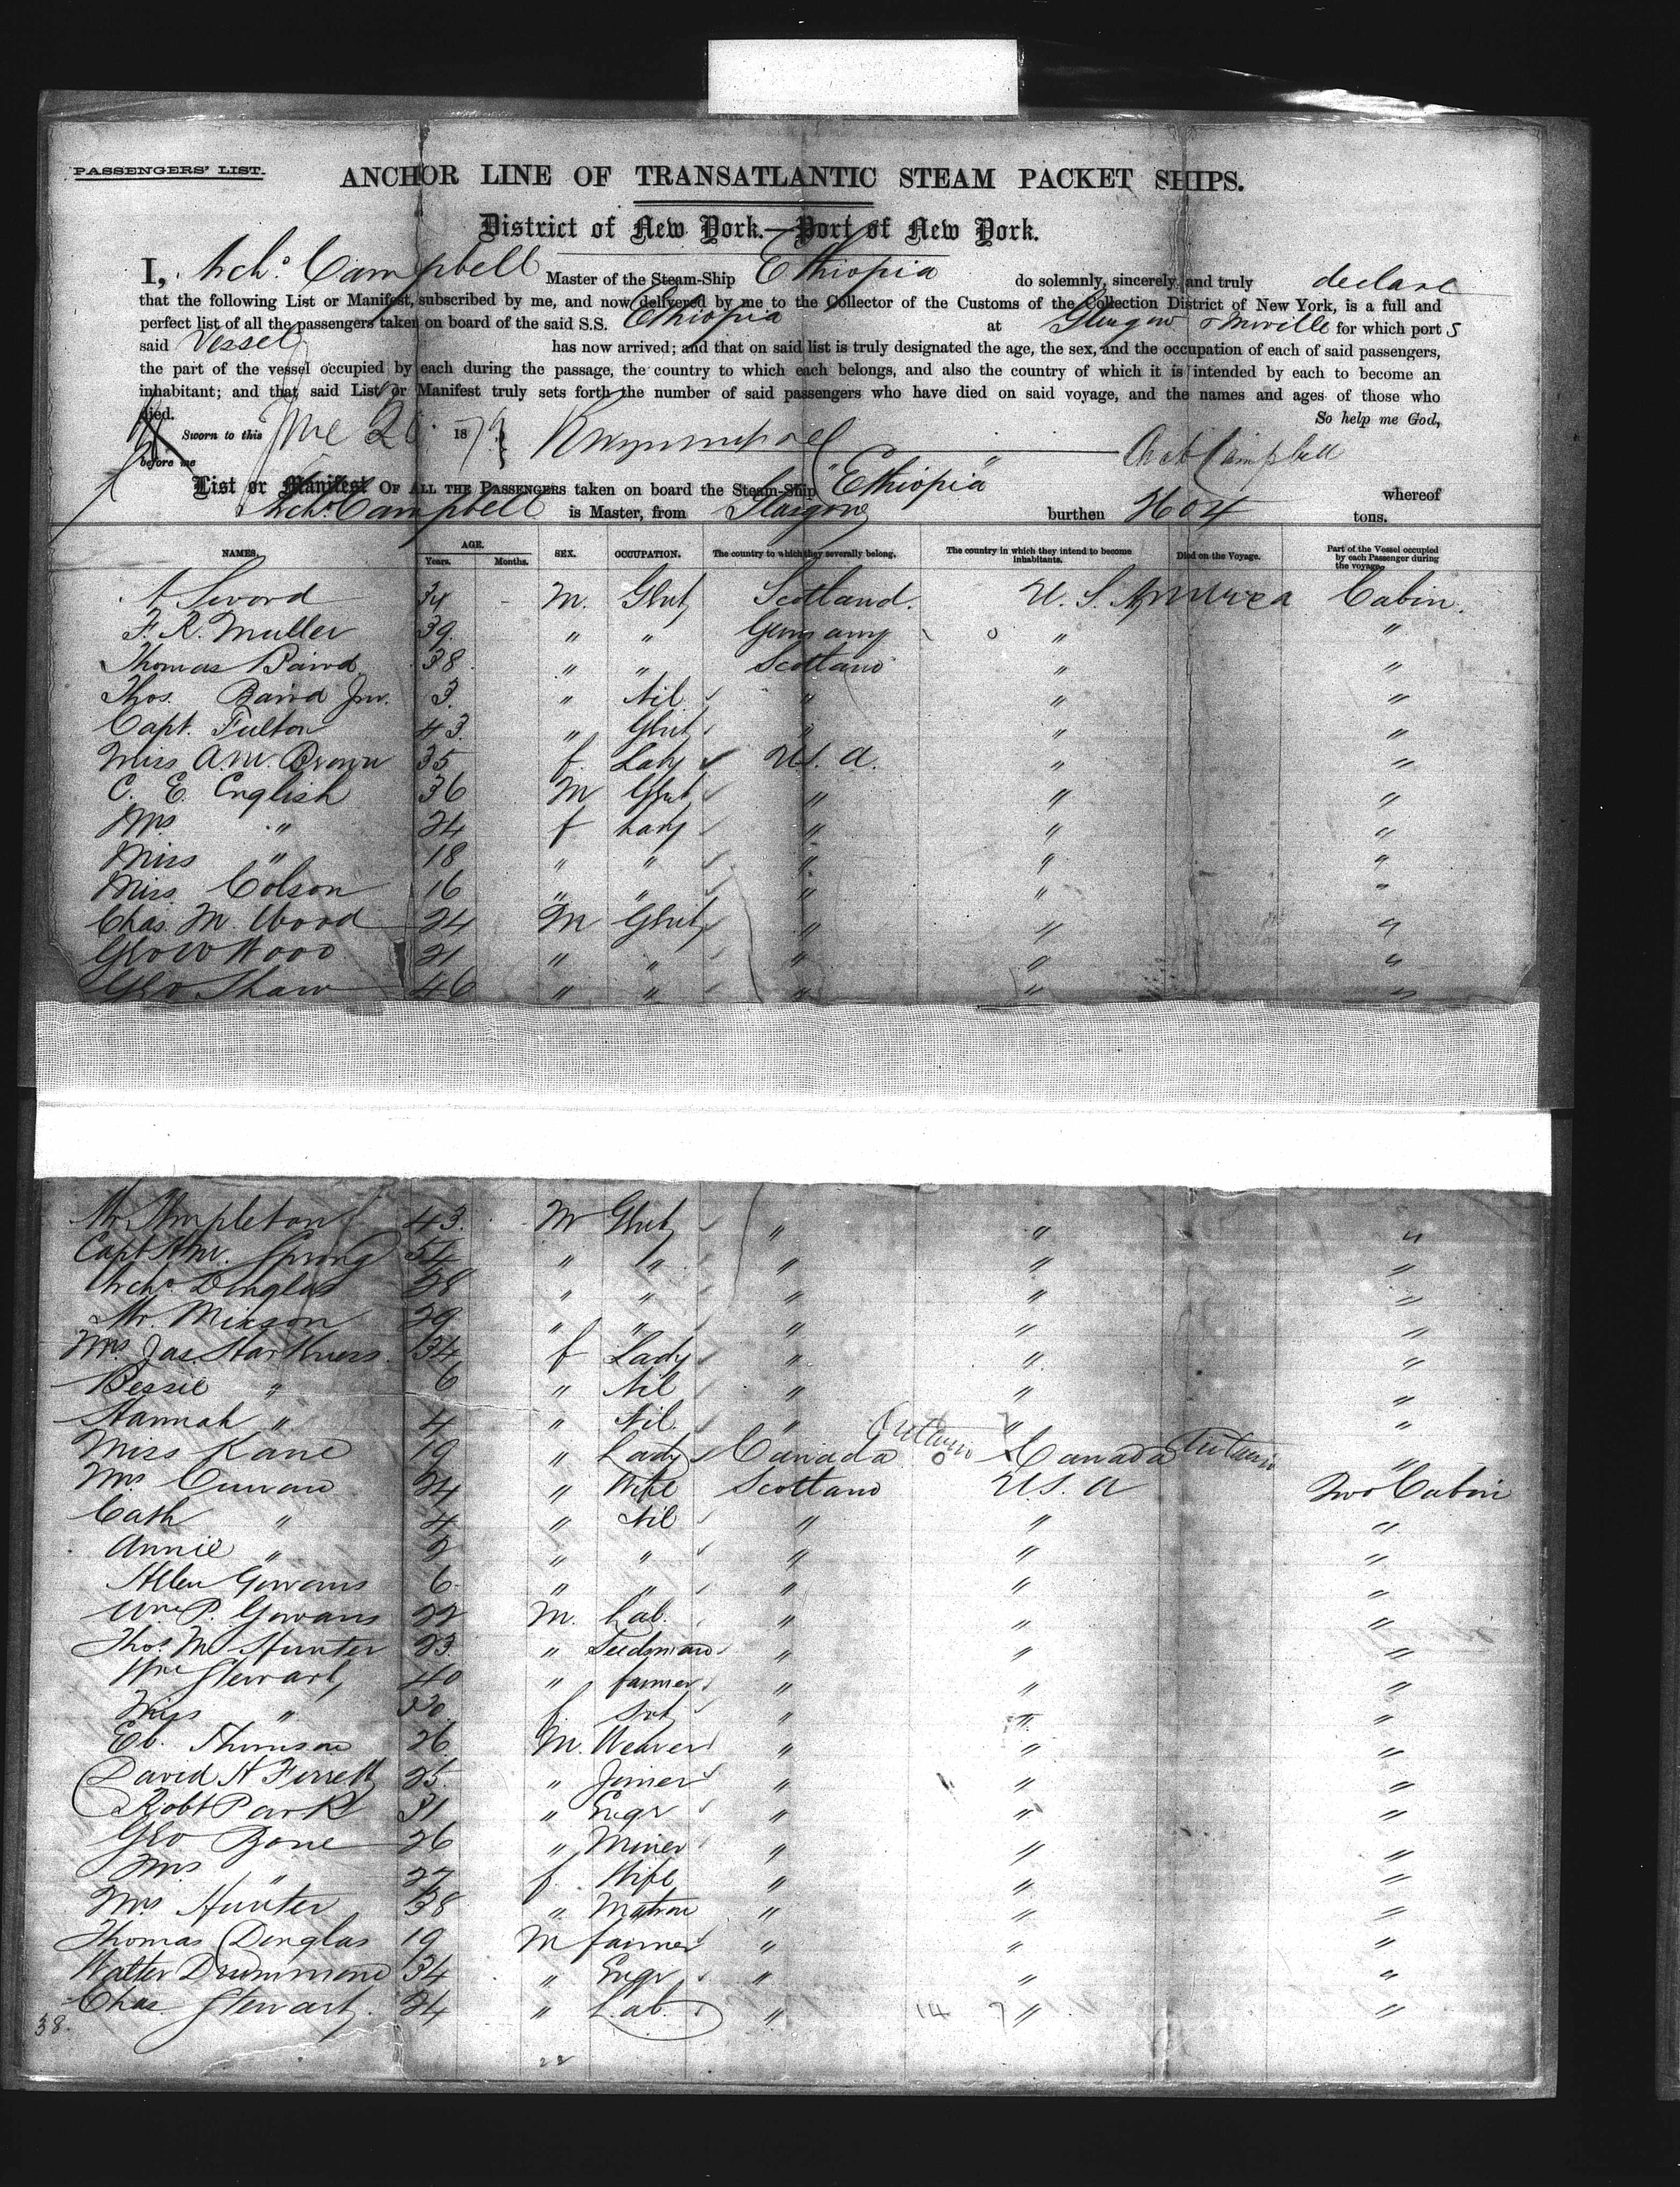 PASSENGERS' LIST.
ANCHOR LINE OF TRANSATLANTIC STEAM PACKET SHIPS.
District of New York.—Port of New York.
I, Archd. Campbell Master of the Steam-Ship Ethiopia do solemnly, sincerely and truly declare
that the following List or Manifest, subscribed by me, and now delivered by me to the Collector of the Customs of the Collection District of New York, is a full and
perfect list of all the passengers taken on board of the said S.S. Ethiopia at Glasgow & Moville for which port s
said Vessel has now arrived; and that on said list is truly designated the age, the sex, and the occupation of each of said passengers,
the part of the vessel occupied by each during the passage, the country to which each belongs, and also the country of which it is intended by each to become an
inhabitant; and that said List or Manifest truly sets forth the number of said passengers who have died on said voyage, and the names and ages of those who
died. So help me God,
Sworn to this June 26 187
before me Archd Campbell
List or Manifest OF ALL THE PASSENGERS taken on board the Steam-Ship "Ethiopia" whereof
Archd. Campbell is Master, from Glasgow burthen 2604 tons.
NAMES. AGE. Years. Months. SEX. OCCUPATION. The country to which they severally belong. The country in which they intend to become inhabitants. Died on the Voyage. Part of the Vessel occupied by each Passenger during the voyage.
A Sword 34 - M. Glnt Scotland. U. S. America Cabin.
F. R. Muller 39 " " Germany " "
Thomas Baird 38 " " Scotland " "
Thos. Baird Jnr. 3 " Nil " " "
Capt. Fulton 43 " Glnt " " "
Miss A.M. Brown 35 f. Lady U.S.A. " "
C. E. English 36 M Glnt " " "
Mrs " 24 f Lady " " "
Miss " 18 " " " " "
Miss Colson 16 " " " " "
Chas. M Wood 24 M Glnt " " "
Geo W Wood 21 " " " " "
Geo Shaw 46 " " " " "
Mr Templeton 43 M Glnt " " "
Capt Wm. Sprong 54 " " " " "
Archd Douglas 28 " " " " "
Mr. Mixson 29 " " " " "
Mrs Jas. 34 f Lady " " "
Bessie " 6 " Nil " " "
Hannah " 4 " Nil " " "
Miss Kane 19 " Lady Canada Canada "
Mrs Curran 24 " Wife Scotland U.S.A Two Cabin
Cath " 4 " Nil " " "
Annie " 2 " " " " "
Allen Gowans 6 " " " " "
Wm P. Gowans 22 M. Lab. " " "
Thos M Hunter 23 " Seedsman " " "
Wm Stewart 40 " farmer " " "
Miss " 20 f Svt " " "
Eb. Thomson 26 M. Weaver " " "
David H Ferrett 25 " Joiner " " "
Robt Park 31 " Engr " " "
Geo Bone 26 " Miner " " "
Mrs " 27 f. Wife " " "
Mrs Hunter 38 " Matron " " "
Thomas Douglas 19 M farmer " " "
Walter Drummond 34 " Engr " " "
Chas Stewart 24 " Lab. " 14 7 " "
38.
22